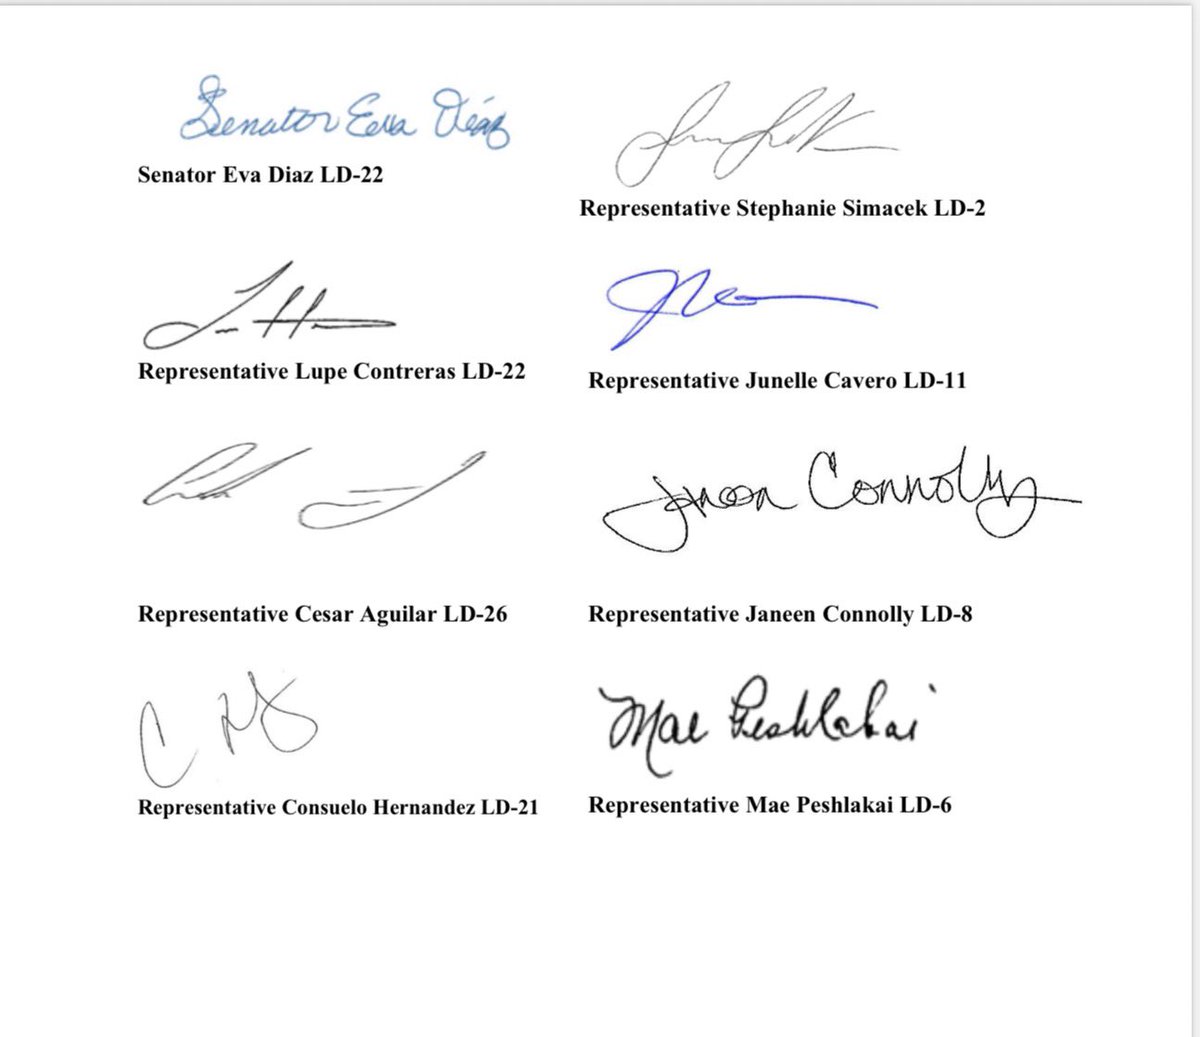 Senator Eva Díaz
Senator Eva Diaz LD-22
Representative Stephanie Simacek LD-2
Representative Lupe Contreras LD-22
Representative Junelle Cavero LD-11
Janeen Connolly
Representative Cesar Aguilar LD-26
Representative Janeen Connolly LD-8
Mae Peshlakai
Representative Consuelo Hernandez LD-21
Representative Mae Peshlakai LD-6